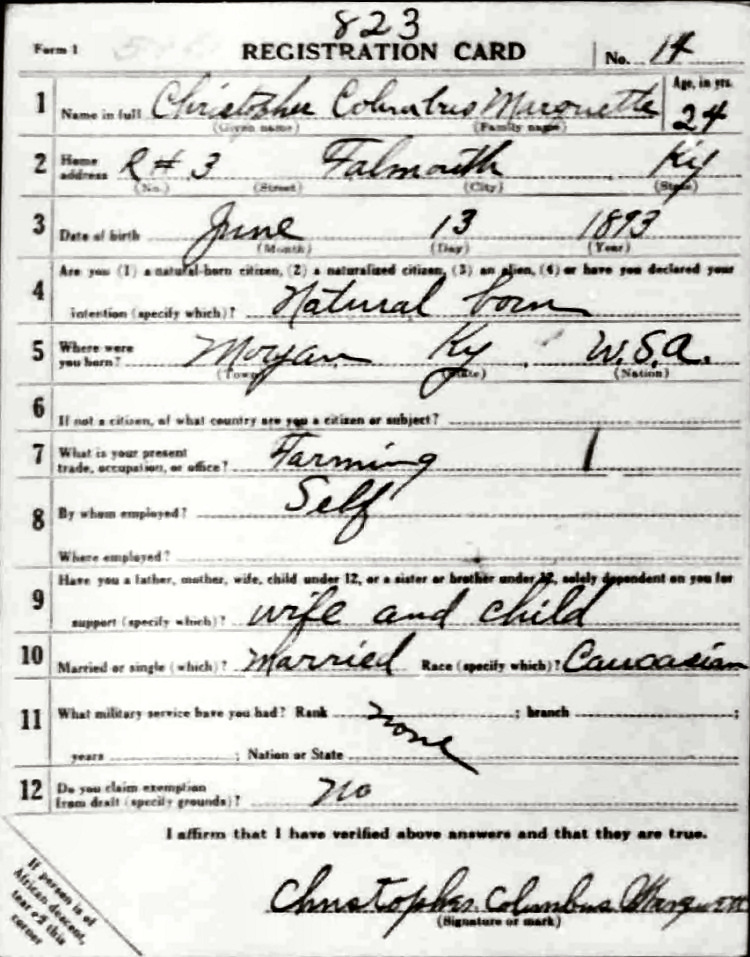 823
Form 1 REGISTRATION CARD No. 14
1 Name in full Christopher Columbus Marquette Age, in yrs. 24
(Given name) (Family name)
2 Home address R # 3 Falmouth Ky
(No.) (Street) (City) (State)
3 Date of birth June 13 1893
(Month) (Day) (Year)
4 Are you (1) a natural-born citizen, (2) a naturalized citizen, (3) an alien, (4) or have you declared your
intention (specify which)? Natural born
5 Where were you born? Morgan Ky U.S.A.
(Town) (State) (Nation)
6 If not a citizen, of what country are you a citizen or subject?
7 What is your present trade, occupation, or office? Farming 1
8 By whom employed? Self
Where employed?
9 Have you a father, mother, wife, child under 12, or a sister or brother under 12, solely dependent on you for
support (specify which)? wife and child
10 Married or single (which)? Married Race (specify which)? Caucasian
11 What military service have you had? Rank none ; branch ;
years ; Nation or State
12 Do you claim exemption from draft (specify grounds)? no
I affirm that I have verified above answers and that they are true.
Christopher Columbus Marquette
(Signature or mark)
If person is of
African descent,
tear off this
corner